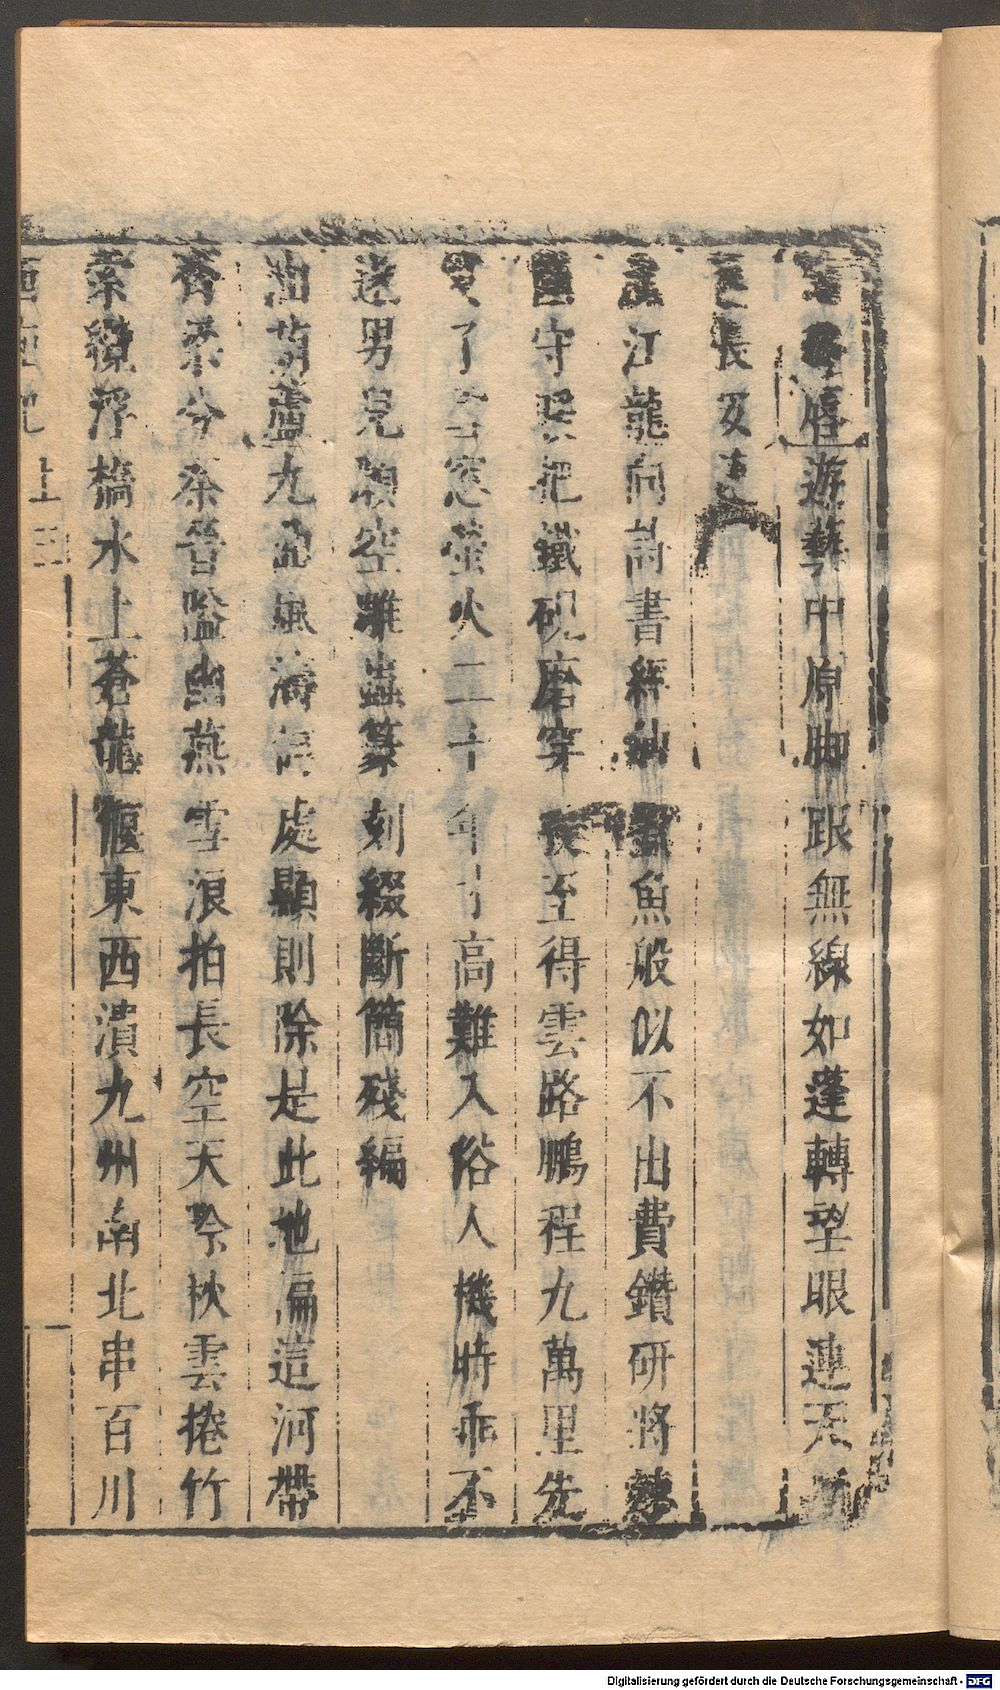 遊藝中原脚跟無線如蓬轉望眼連天
長安
江龍向詩書經魚般以不出費鑽研將
守把鐵硯磨穿得雲路鵬程九萬里先
了窓螢火二十年高難入俗人機時乖不
男兒願空雕蟲篆刻綴斷簡殘編
九曲風濤何處顯則除是此地偏這河帶
齊梁分秦晉隘幽燕雪浪拍長空天際秋雲捲竹
索纜浮橋水上蒼龍偃東西潰九州南北串百川
Digitalisierung gefördert durch die Deutsche Forschungsgemeinschaft - DFG